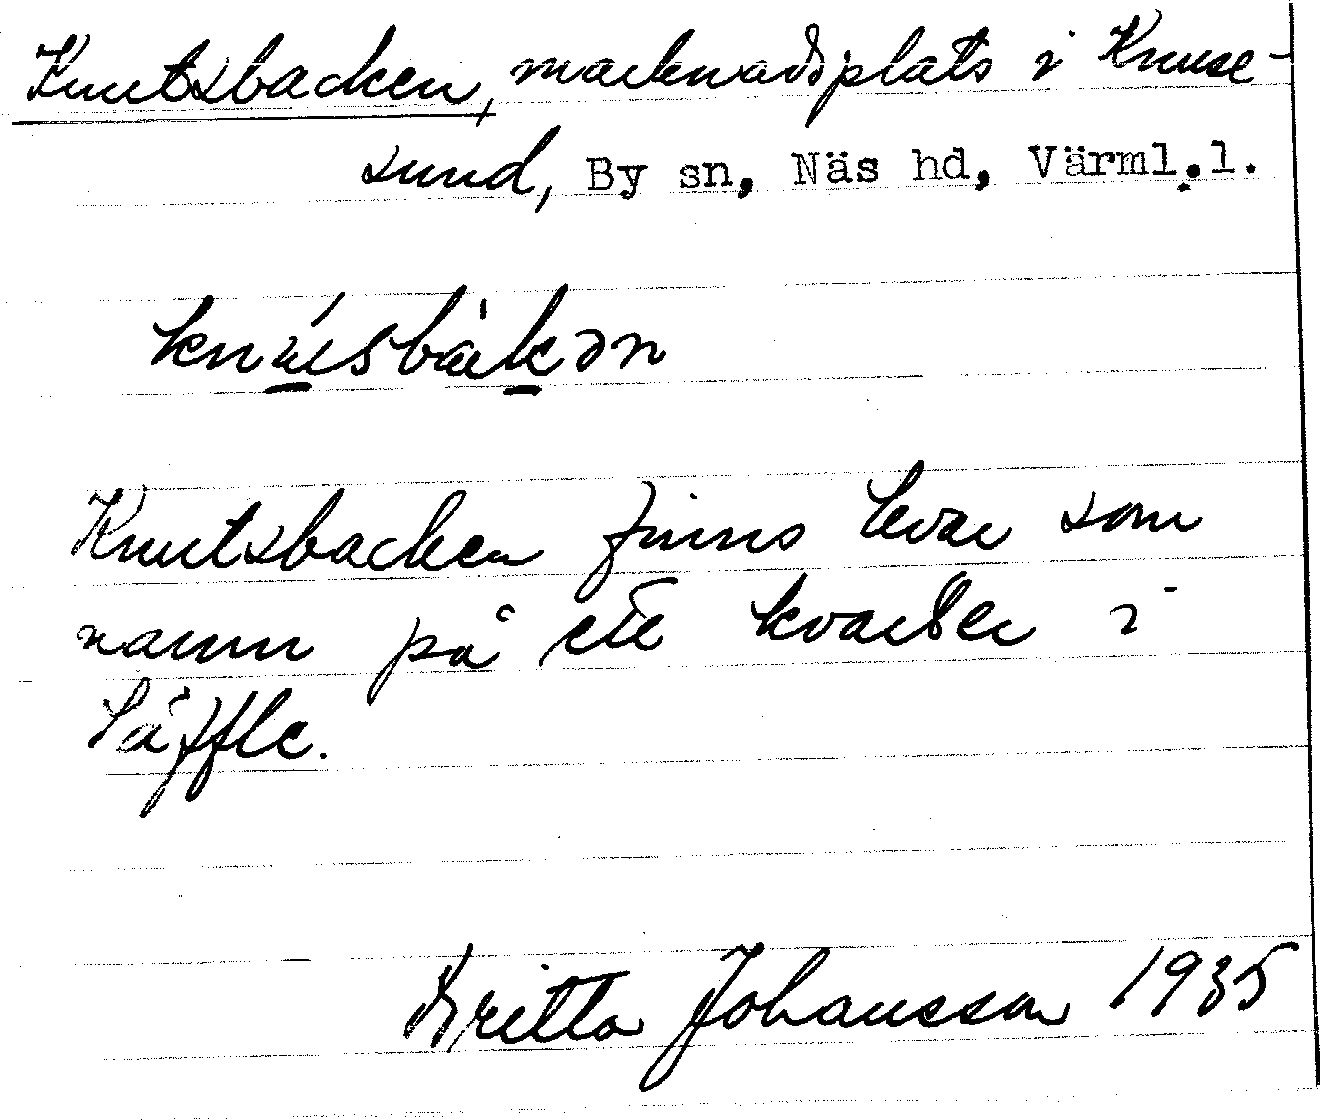 Knutsbacken, marknadsplats i Knuse-
sund, By sn, Näs hd, Värml.l.
knúsbàkən
Knutsbacken finns kvar som
namn på ett kvarter i
Säffle.
Britta Johansson 1935